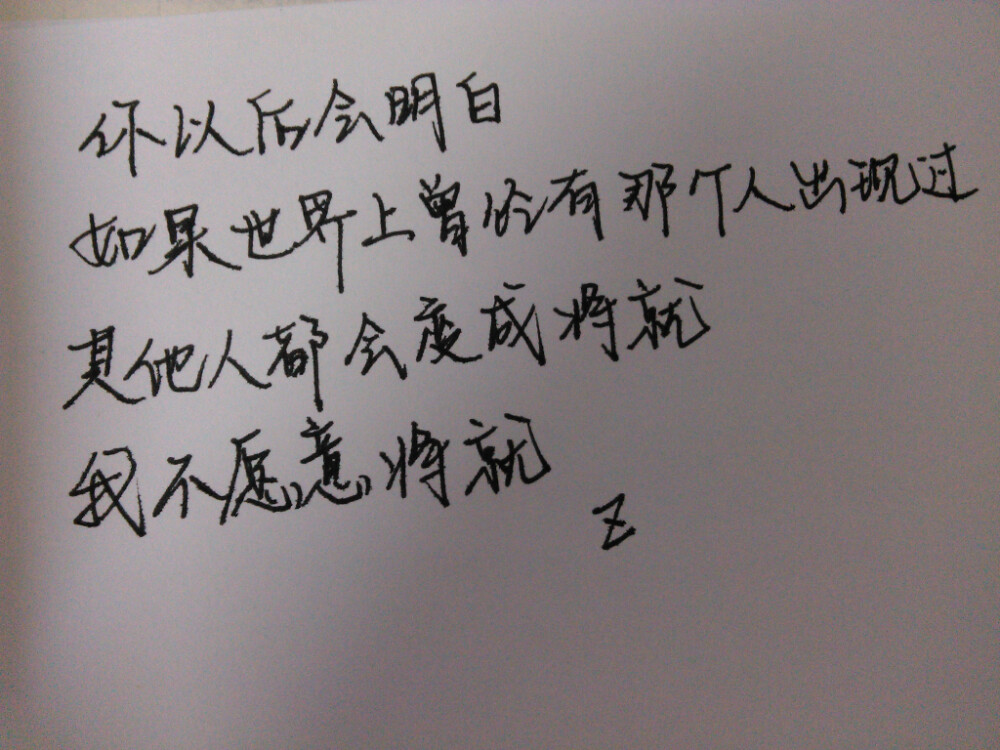 你以后会明白
如果世界上曾经有那个人出现过
其他人都会变成将就
我不愿意将就
Z